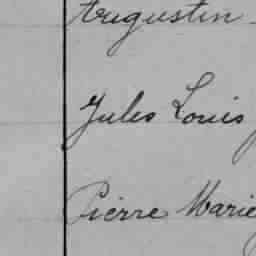 Augustin
Jules Louis
Pierre Marie